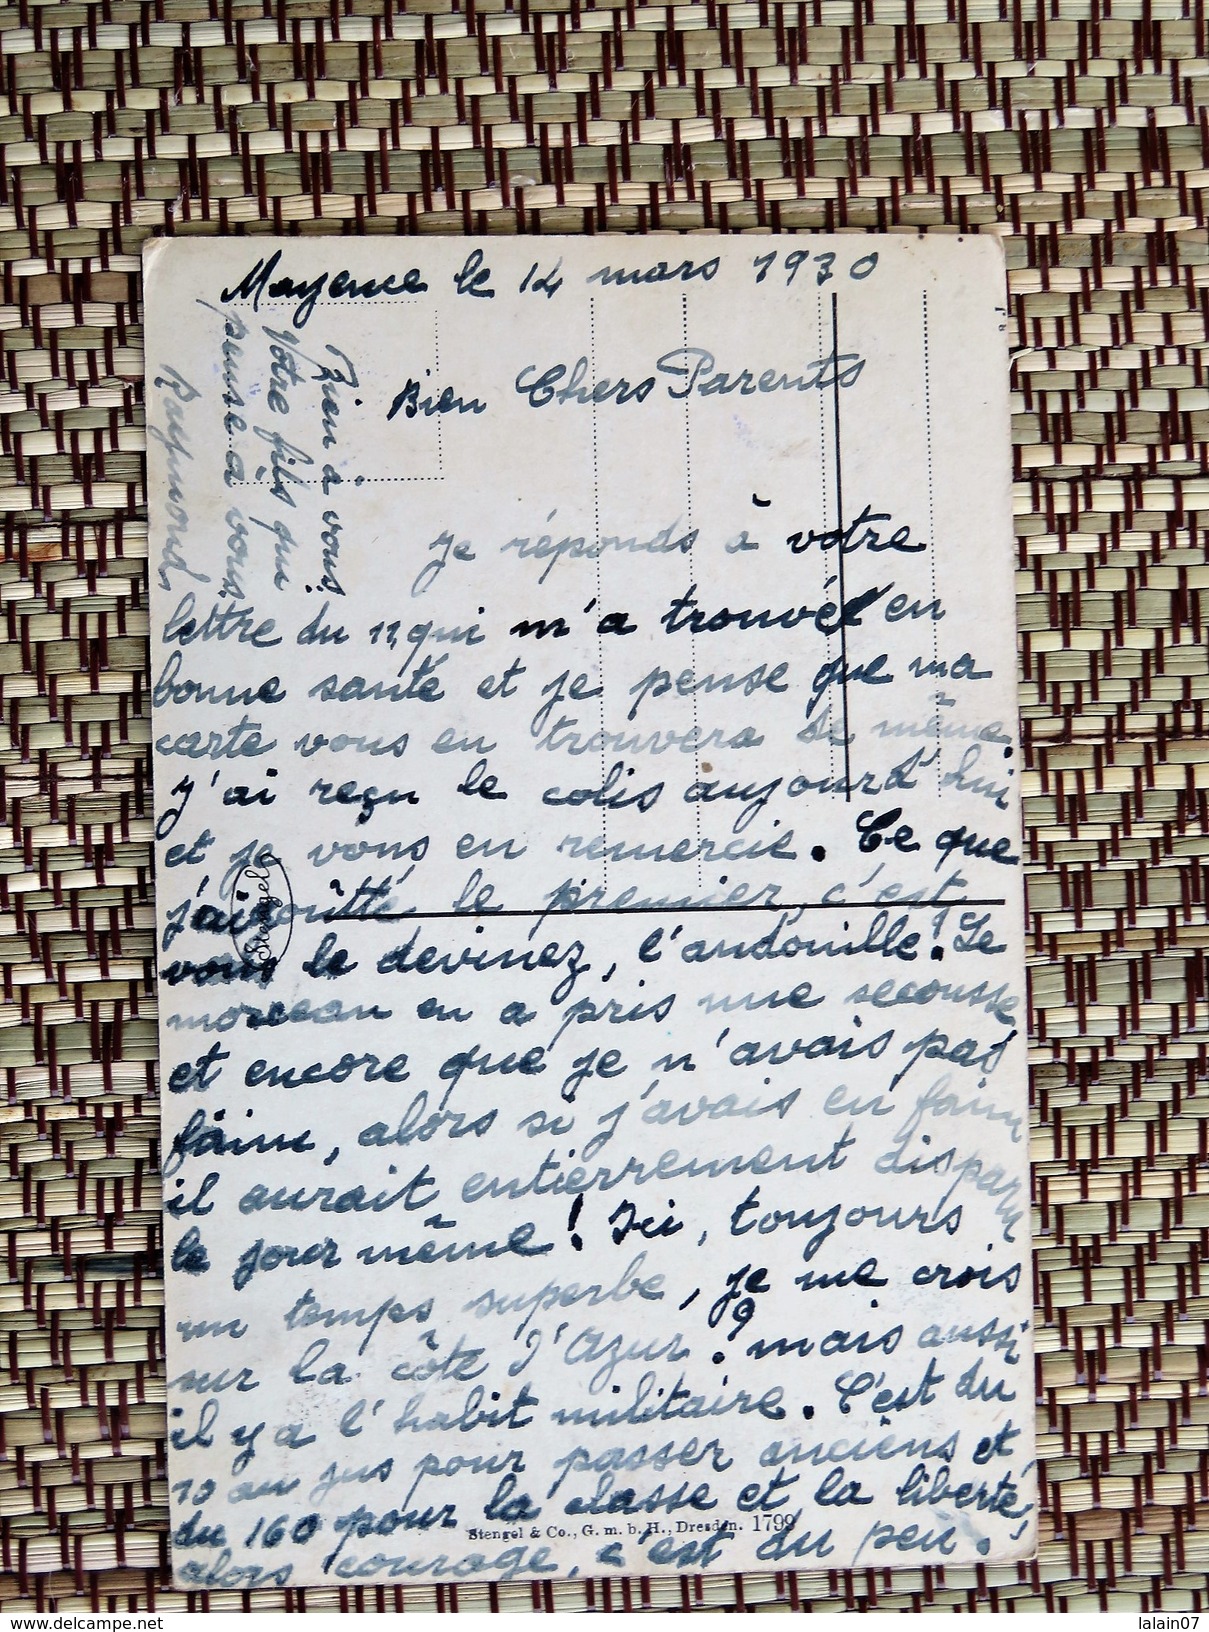 Mayence le 14 mars 1930
Bien Chers Parents
Je réponds à votre
lettre du 11, qui m'a trouvée en
bonne santé et je pense que ma
carte vous en trouvera de même.
J'ai reçu le colis aujourd'hui
et je vous en remercie. Ce que
j'ai goûtté le premier, c'est
vous le devinez, l'andouille! Le
morceau en a pris une secousse,
et encore que je n'avais pas
faim, alors si j'avais eu faim
il aurait entierrement disparu
le jour même! Ici, toujours
un temps superbe, je me crois
sur la côte d'Azur? mais aussi
il y a l'habit militaire. C'est du
10 au jus pour passer anciens et
du 160 pour la classe et la liberté,
alors courage, c'est du peu!
Bien à vous.
Votre fils qui
pense à vous.
Raymond
Stengel
Stengel & Co., G. m. b. H., Dresden. 1799
lalain07